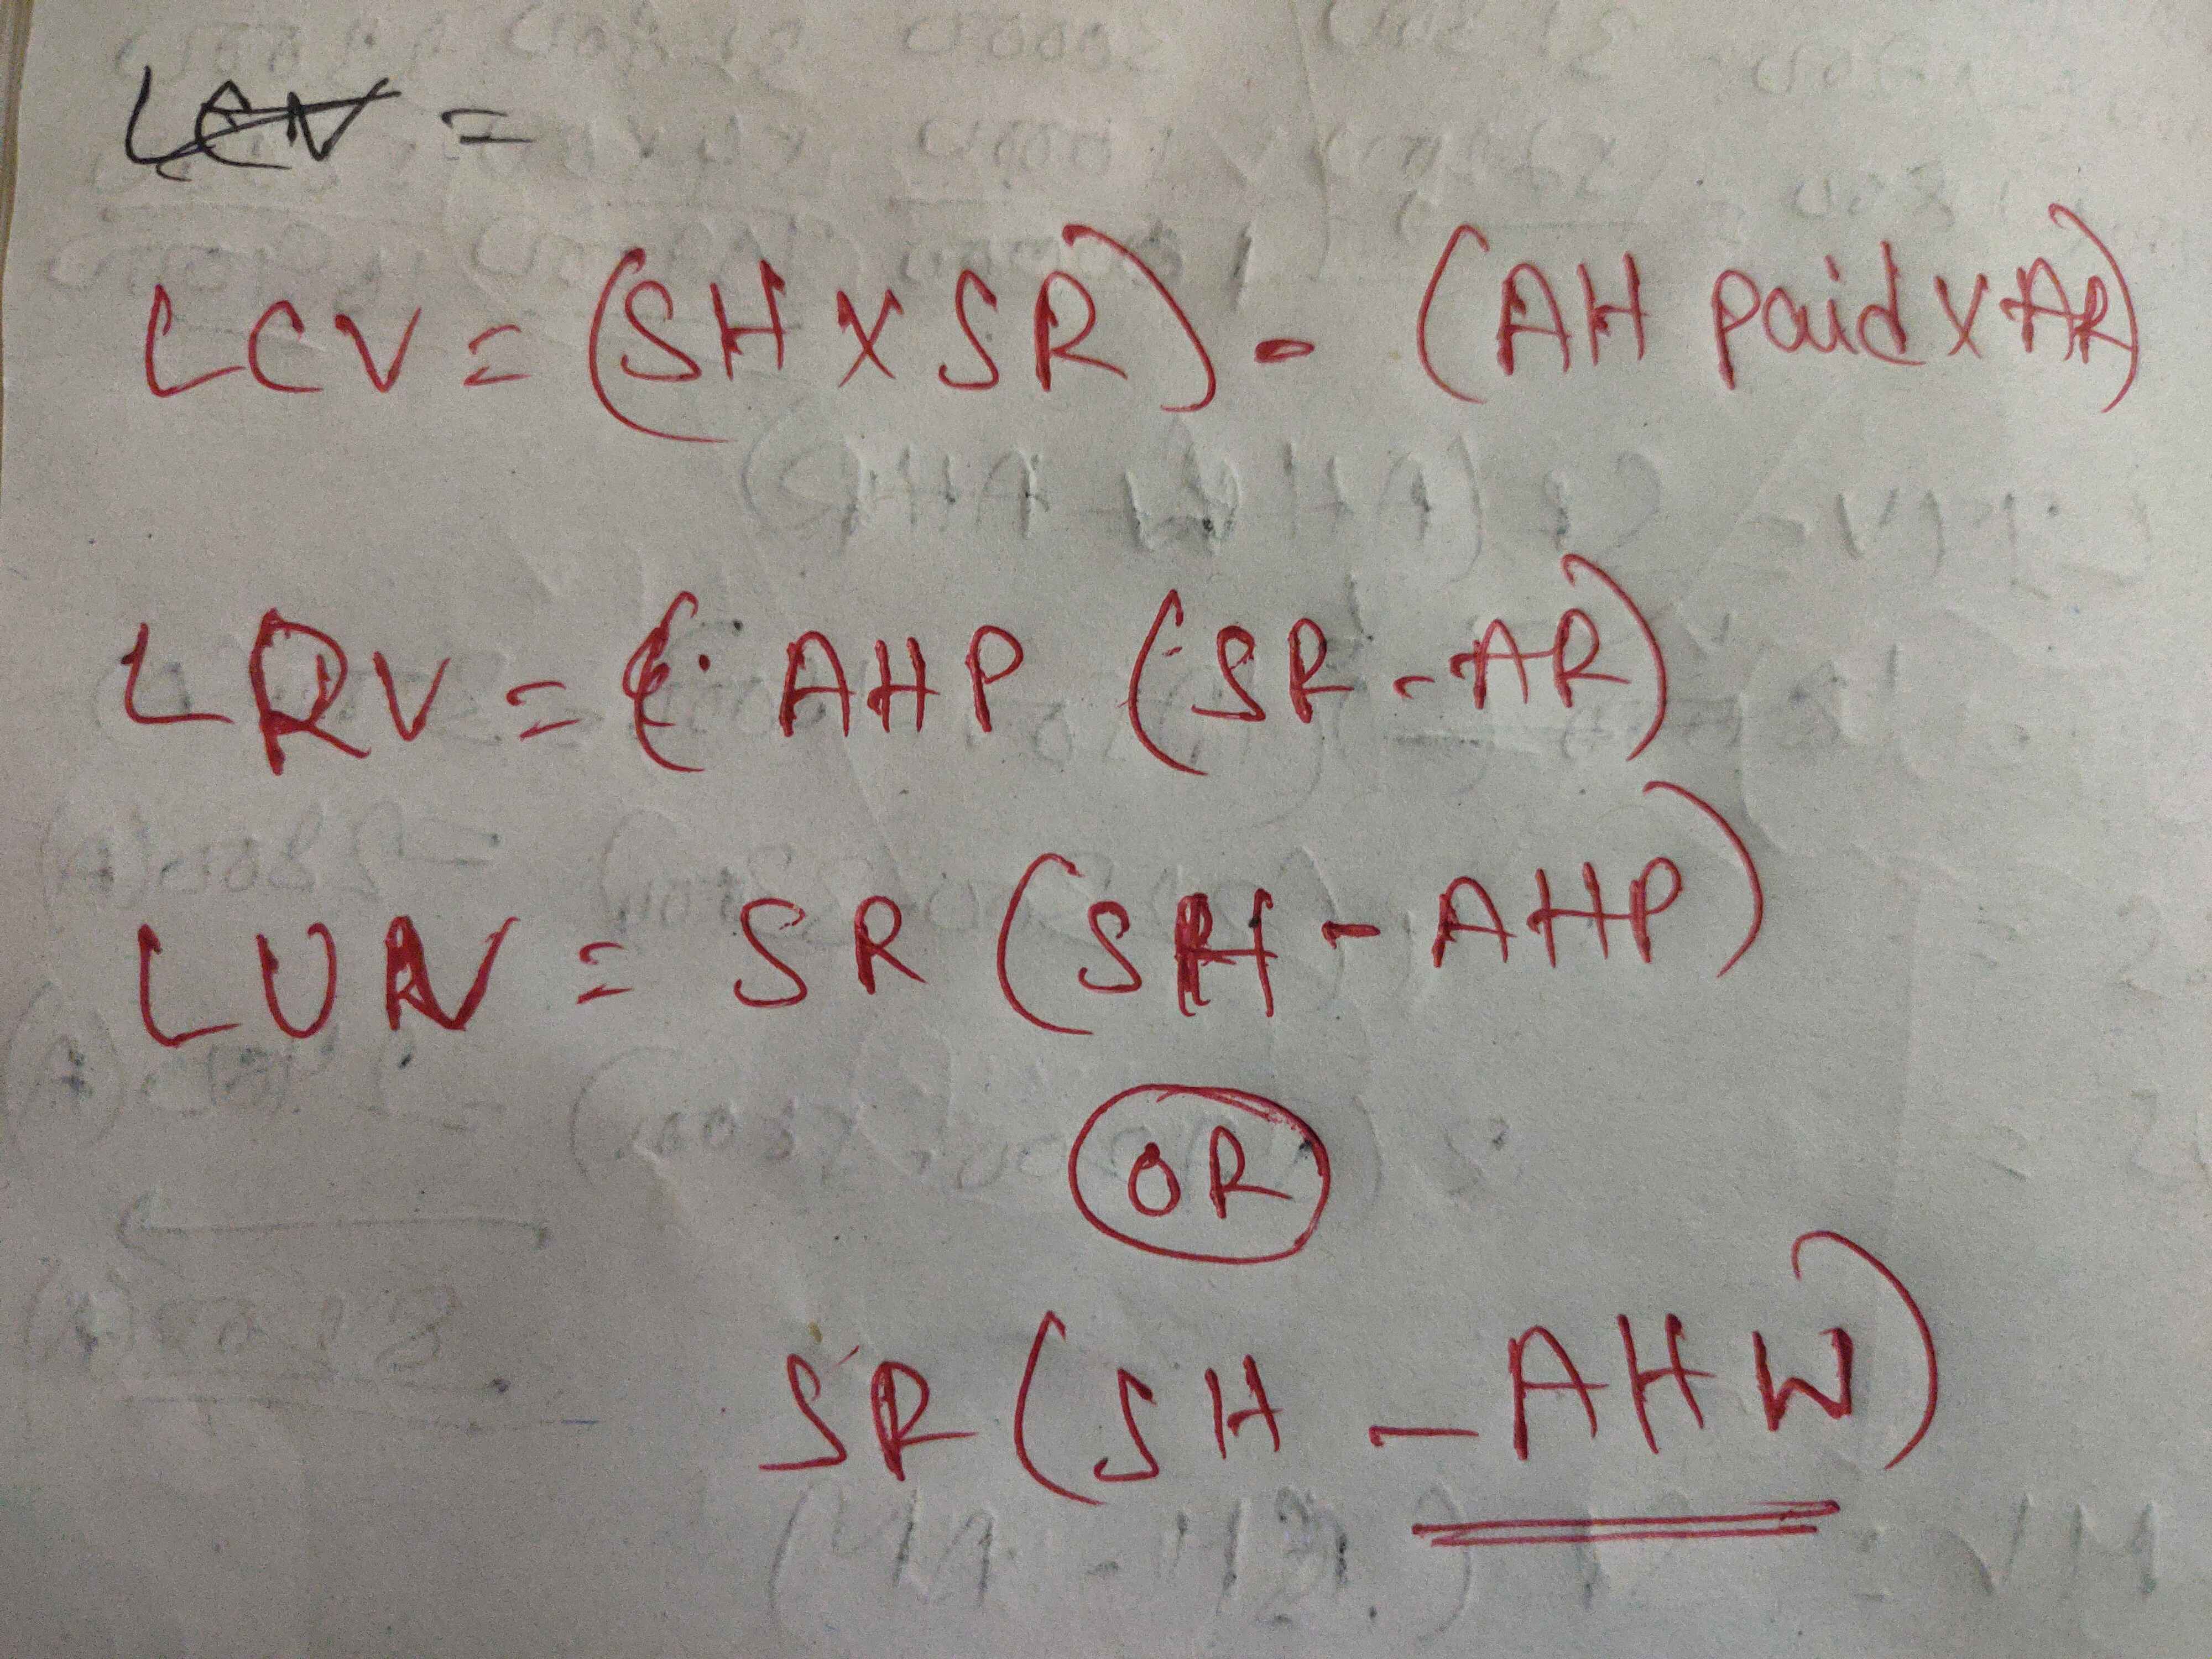 LCV =
LCV = (SH X SR) - (AH paid X AR)
LRV = AHP (SR - AR)
LUV = SR (SH - AHP)
OR
SR (SH - AHW)